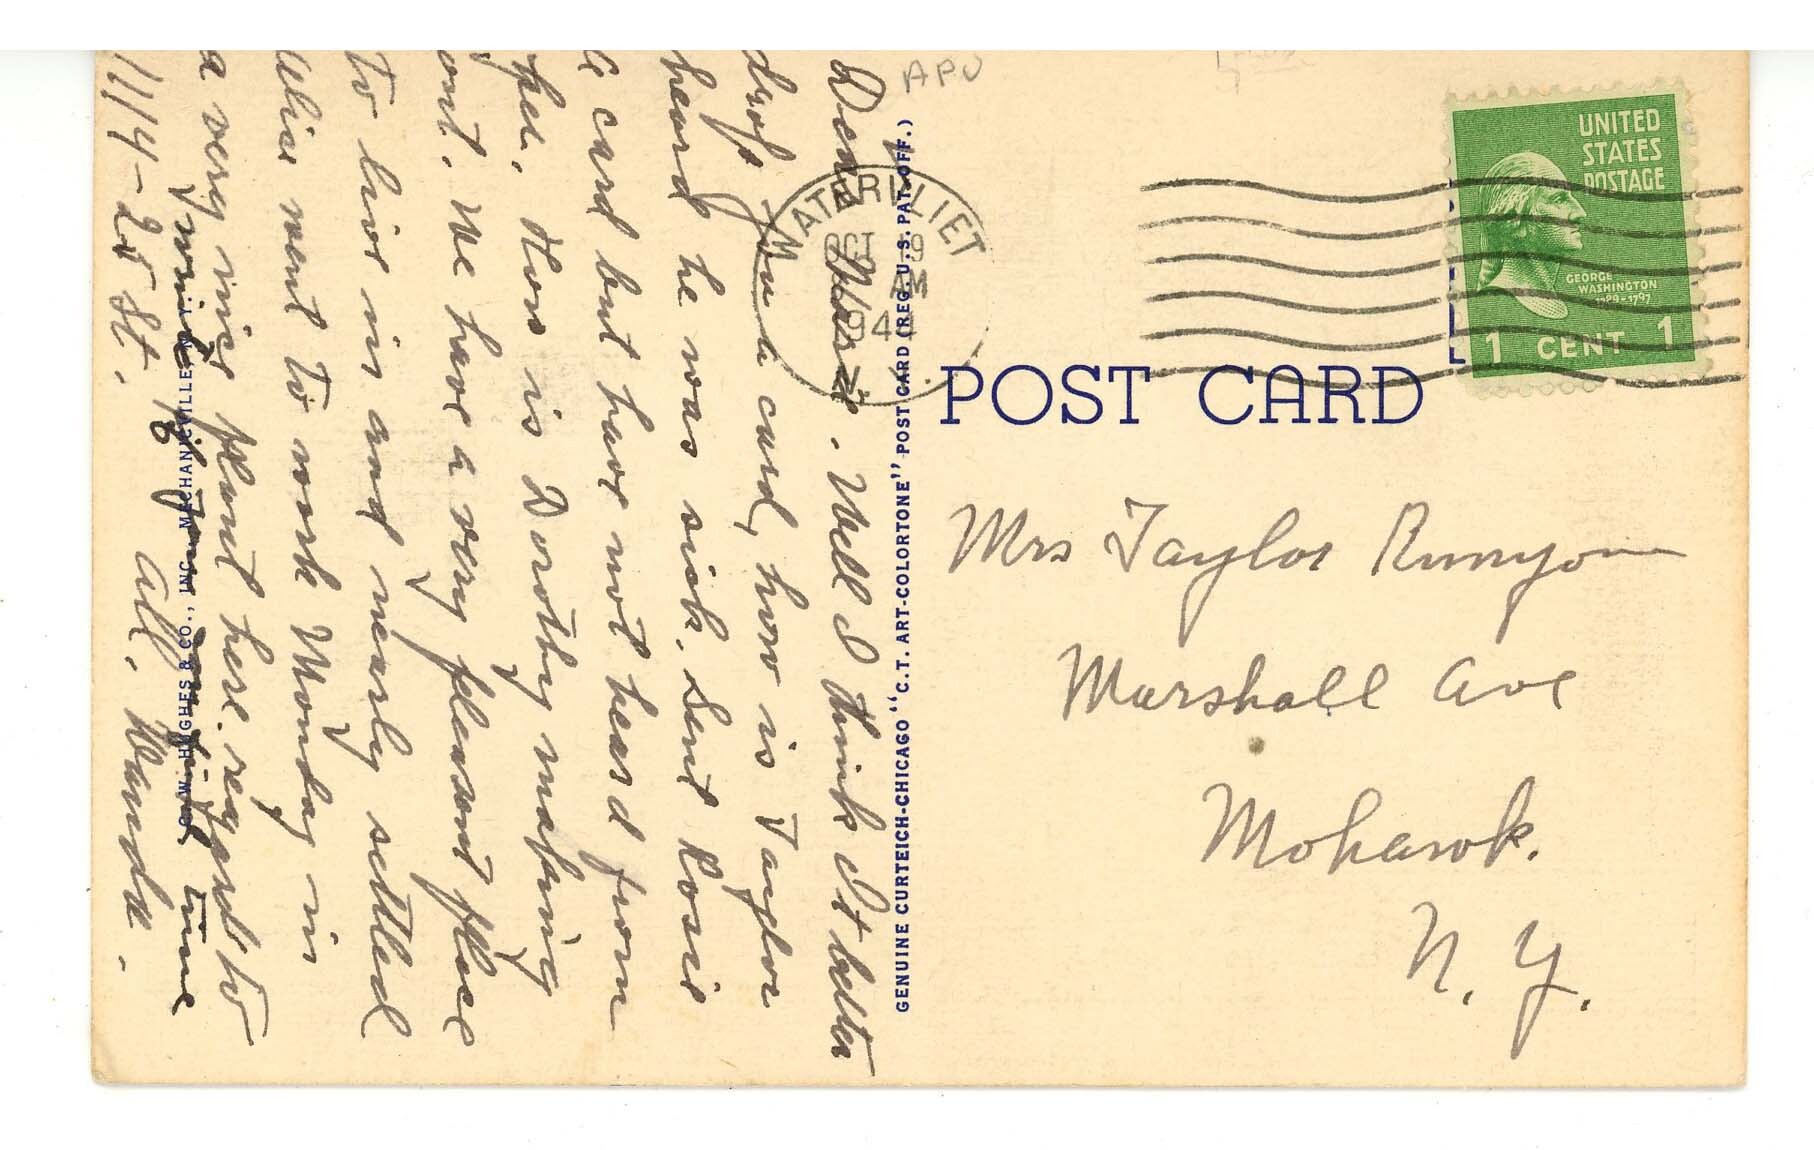 APU
UNITED
STATES
POSTAGE
GEORGE
WASHINGTON
1 CENT 1
WATERVLIET
OCT 19
AM
194
N.Y.
POST CARD
Mrs Taylor Runyon
Marshall Ave
Mohawk.
N. Y.
GENUINE CURTEICH-CHICAGO "C.T. ART-COLORTONE" POST CARD (REG. U.S. PAT. OFF.)
Dear . Well I think I'd better
drop you a card, how is Taylor
heard he was sick. Sent Rosie
a card but have not heard from
her. How is Dorothy making
out. We have a very pleasant place
to live in and nearly settled
Allie went to work Monday in
a very nice plant here. regard to
all. Wanda.
write if you find time
1114-25 St.
HUGHES & CO., INC., MECHANICVILLE, N.Y.